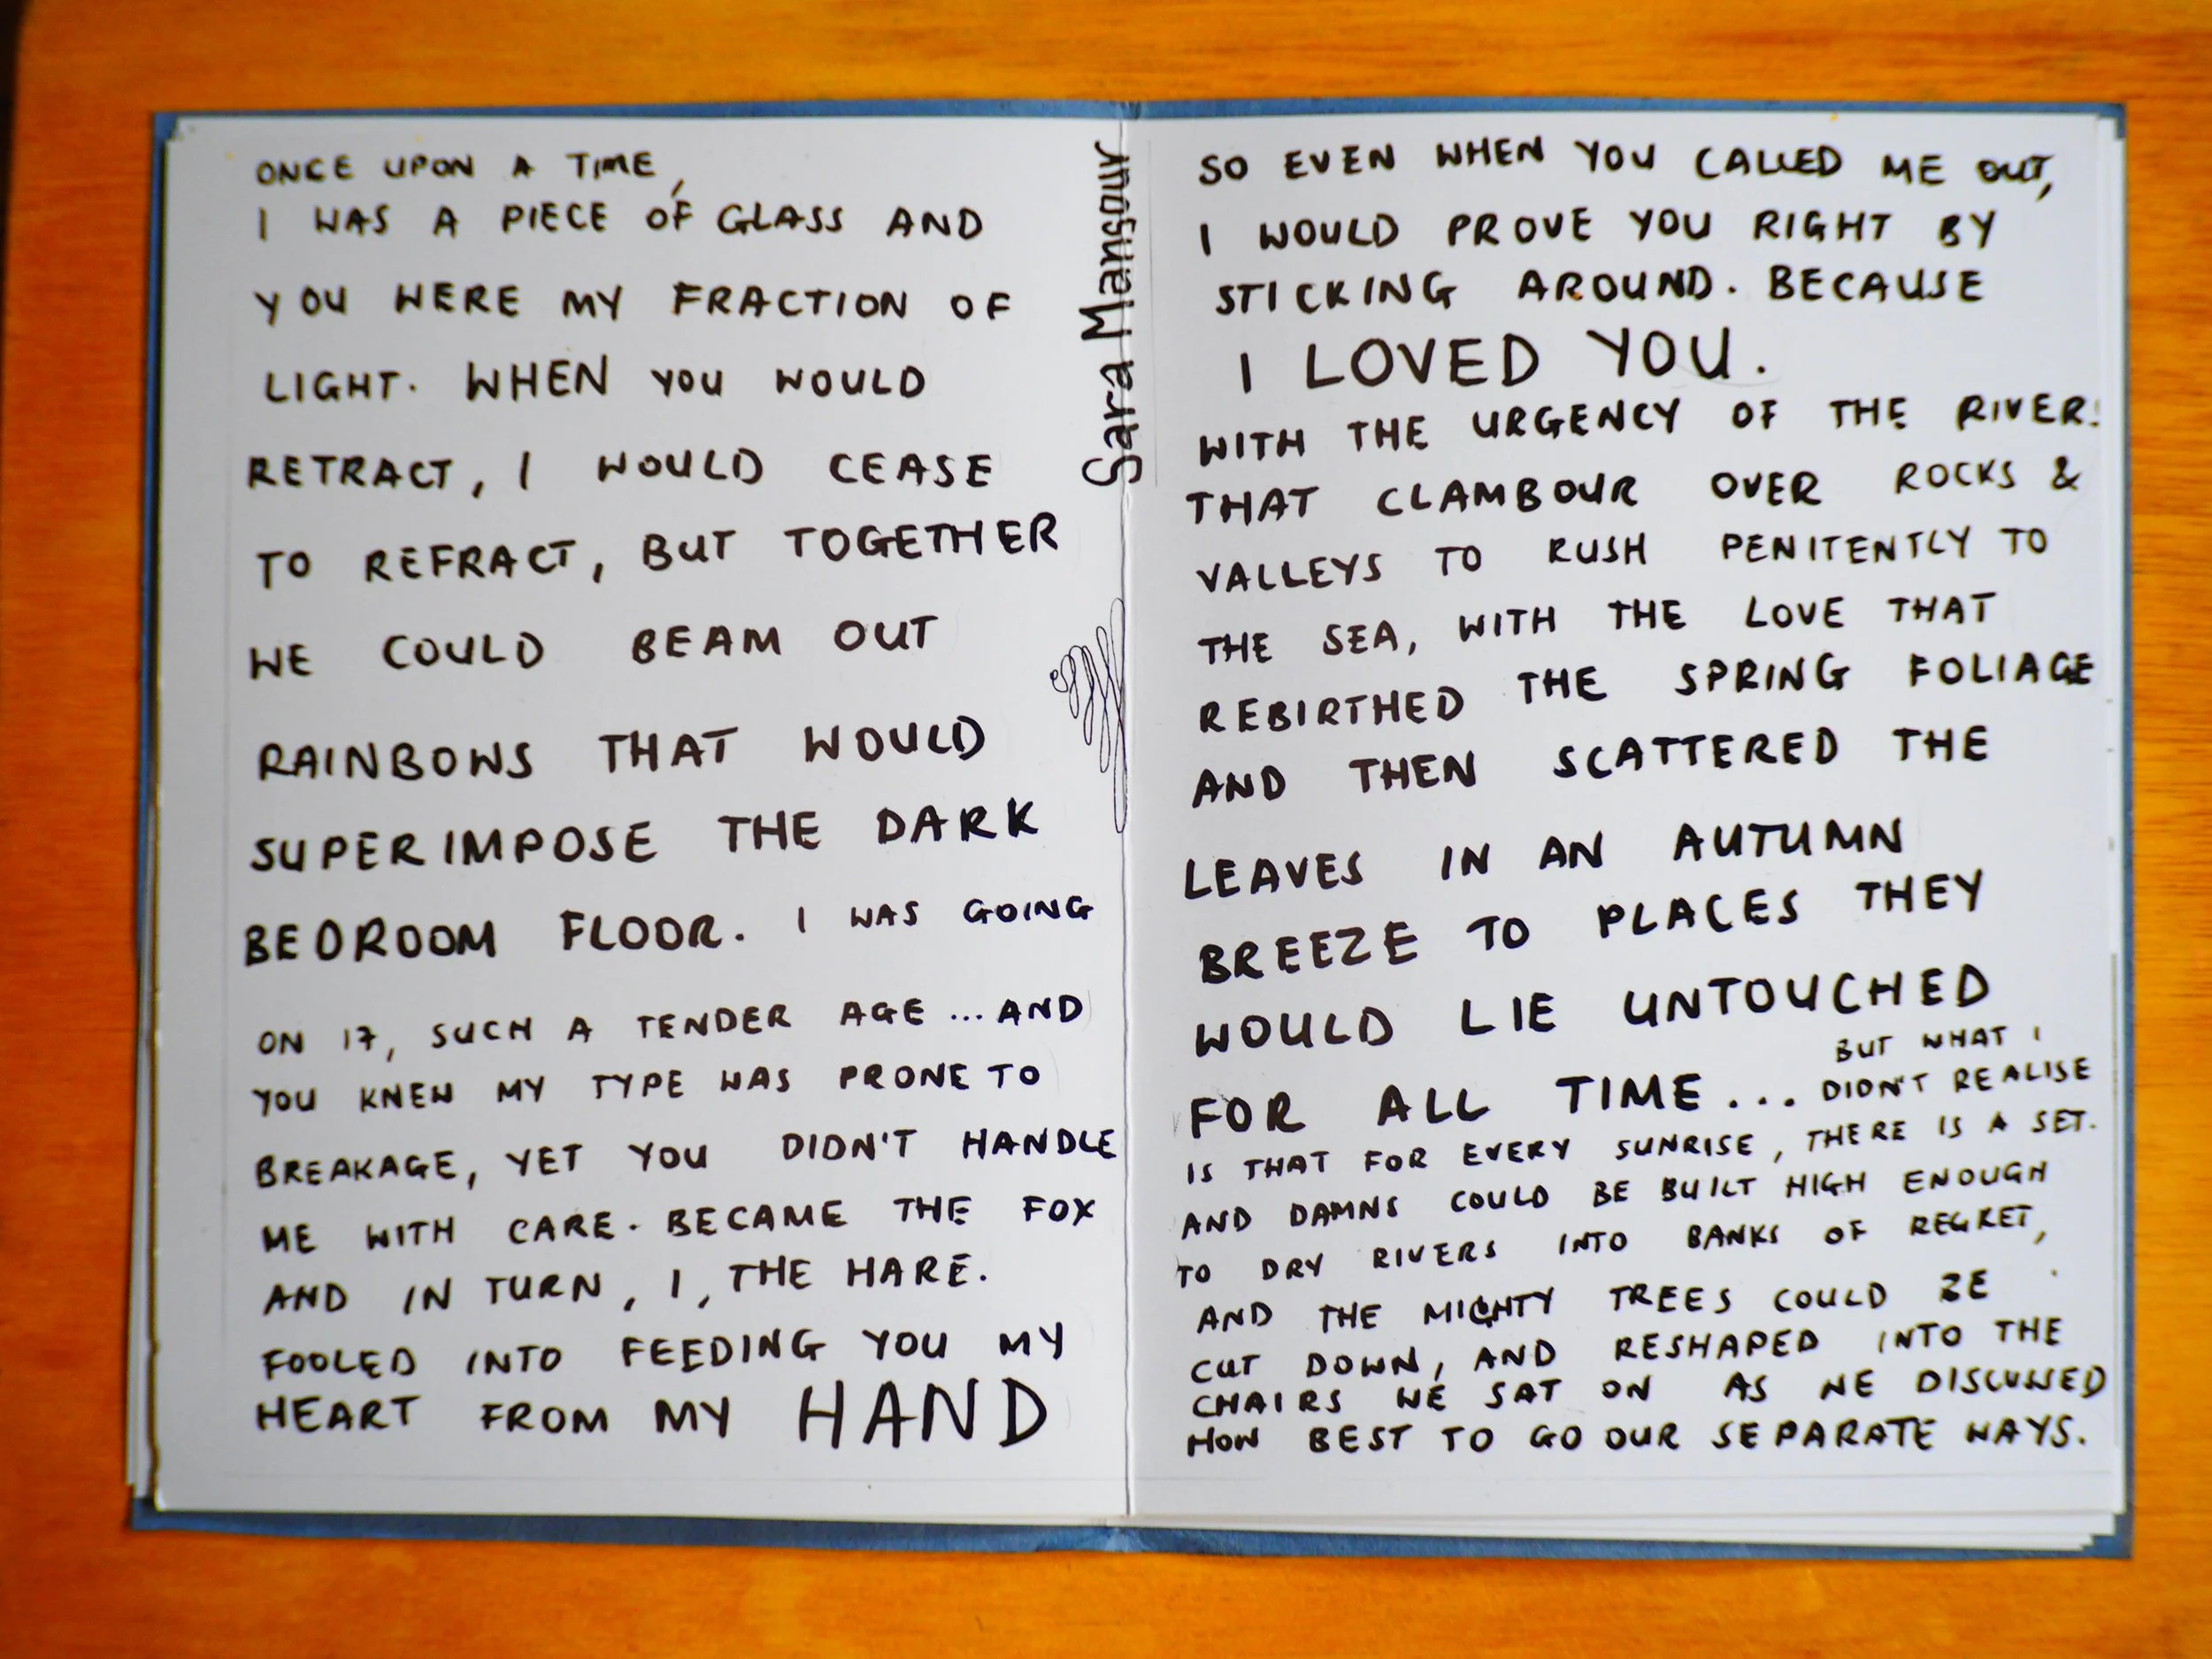 ONCE UPON A TIME,
I WAS A PIECE OF GLASS AND
YOU WERE MY FRACTION OF
LIGHT. WHEN YOU WOULD
RETRACT, I WOULD CEASE
TO REFRACT, BUT TOGETHER
WE COULD BEAM OUT
RAINBOWS THAT WOULD
SUPERIMPOSE THE DARK
BEDROOM FLOOR. I WAS GOING
ON 17, SUCH A TENDER AGE ... AND
YOU KNEW MY TYPE WAS PRONE TO
BREAKAGE, YET YOU DIDN'T HANDLE
ME WITH CARE. BECAME THE FOX
AND IN TURN, I, THE HARE.
FOOLED INTO FEEDING YOU MY
HEART FROM MY HAND
Sara Mansour
SO EVEN WHEN YOU CALLED ME OUT,
I WOULD PROVE YOU RIGHT BY
STICKING AROUND. BECAUSE
I LOVED YOU.
WITH THE URGENCY OF THE RIVERS
THAT CLAMBOUR OVER ROCKS &
VALLEYS TO RUSH PENITENTLY TO
THE SEA, WITH THE LOVE THAT
REBIRTHED THE SPRING FOLIAGE
AND THEN SCATTERED THE
LEAVES IN AN AUTUMN
BREEZE TO PLACES THEY
WOULD LIE UNTOUCHED
FOR ALL TIME...
BUT WHAT I
DIDN'T REALISE
IS THAT FOR EVERY SUNRISE, THERE IS A SET.
AND DAMNS COULD BE BUILT HIGH ENOUGH
TO DRY RIVERS INTO BANKS OF REGRET,
AND THE MIGHTY TREES COULD BE
CUT DOWN, AND RESHAPED INTO THE
CHAIRS WE SAT ON AS WE DISCUSSED
HOW BEST TO GO OUR SEPARATE WAYS.